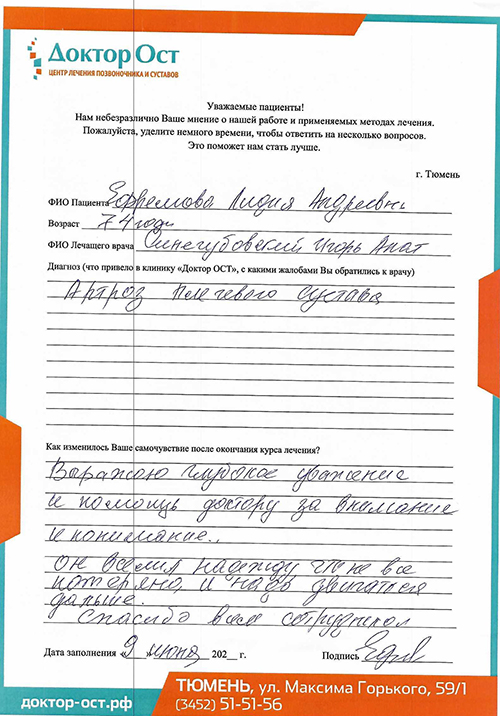 Доктор Ост
ЦЕНТР ЛЕЧЕНИЯ ПОЗВОНОЧНИКА И СУСТАВОВ
Уважаемые пациенты!
Нам небезразлично Ваше мнение о нашей работе и применяемых методах лечения.
Пожалуйста, уделите немного времени, чтобы ответить на несколько вопросов.
Это поможет нам стать лучше.
г. Тюмень
ФИО Пациента Ефремова Лидия Андреевн
Возраст 74 года
ФИО Лечащего врача Синегубовский Игорь Анат
Диагноз (что привело в клинику «Доктор ОСТ», с какими жалобами Вы обратились к врачу)
Артроз плечевого сустава
Как изменилось Ваше самочувствие после окончания курса лечения?
Выражаю глубокое уважение
и помощь доктору за внимание
и понимание..
он вселил надежду что не все
потеряно, и надо двигаться
дальше.
Спасибо всем сотрудникам
Дата заполнения «9» июня 202_ г. Подпись
ТЮМЕНЬ, ул. Максима Горького, 59/1
доктор-ост.рф
(3452) 51-51-56